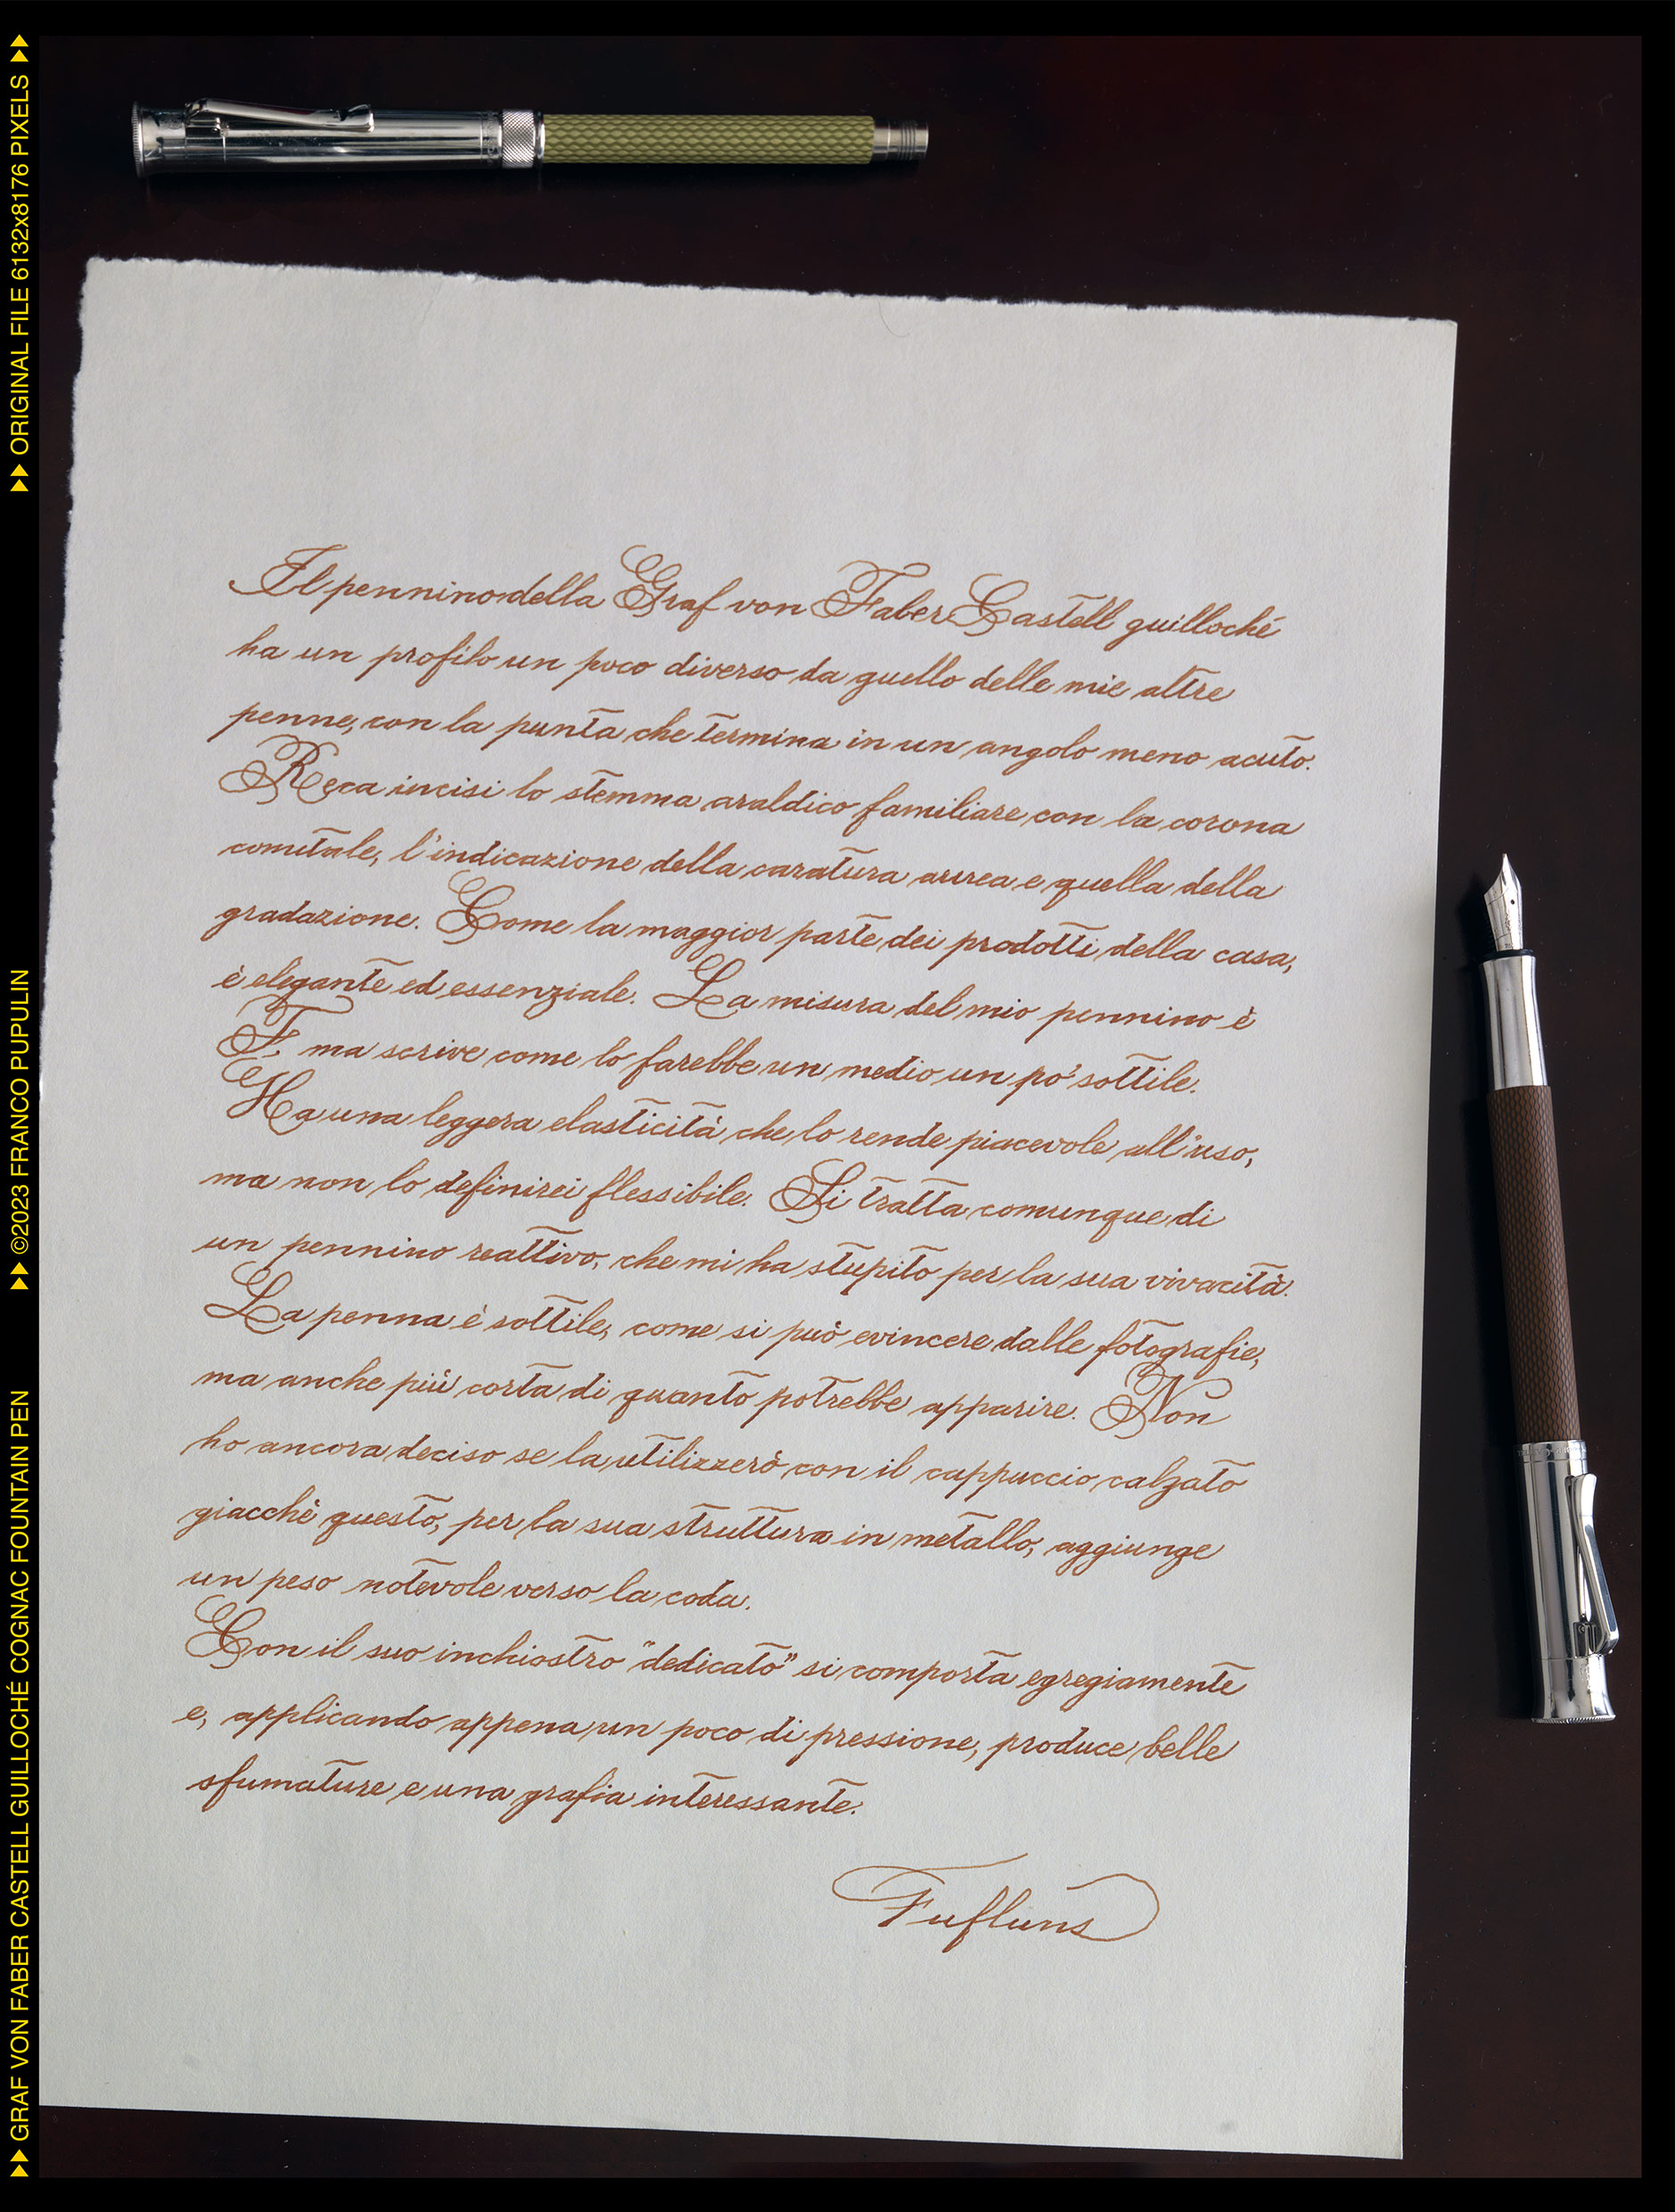 Il pennino della Graf von Faber Castell guilloché
ha un profilo un poco diverso da quello delle mie altre
penne, con la punta che termina in un angolo meno acuto.
Reca incisi lo stemma araldico familiare con la corona
comitale, l'indicazione della caratura aurea e quella della
gradazione. Come la maggior parte dei prodotti della casa,
è elegante ed essenziale. La misura del mio pennino è
F, ma scrive come lo farebbe un medio un po' sottile.
Ha una leggera elasticità che lo rende piacevole all'uso,
ma non lo definirei flessibile. Si tratta comunque di
un pennino reattivo, che mi ha stupito per la sua vivacità.
La penna è sottile, come si può evincere dalle fotografie,
ma anche più corta di quanto potrebbe apparire. Non
ho ancora deciso se la utilizzerò con il cappuccio calzato
giacchè questo, per la sua struttura in metallo, aggiunge
un peso notevole verso la coda.
Con il suo inchiostro "dedicato" si comporta egregiamente
e, applicando appena un poco di pressione, produce belle
sfumature e una grafia interessante.
Fufluns
GRAF VON FABER CASTELL GUILLOCHÉ COGNAC FOUNTAIN PEN
©2023 FRANCO PUPULIN
ORIGINAL FILE 6132x8176 PIXELS